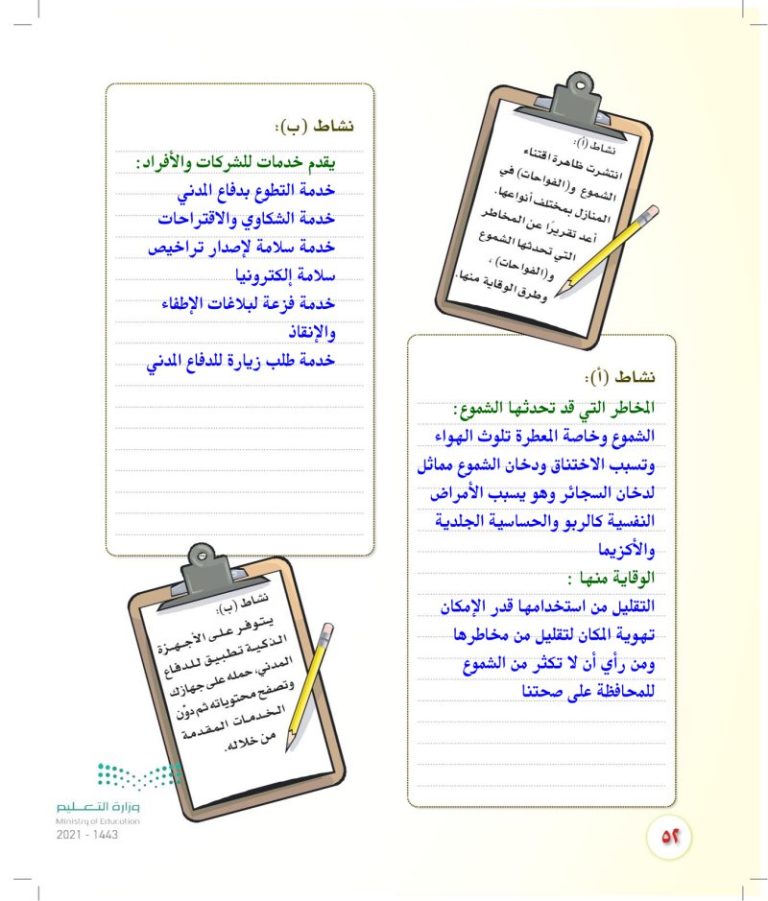 نشاط (أ):
انتشرت ظاهرة اقتناء
الشموع و(الفواحات) في
المنازل بمختلف أنواعها.
أعد تقريرًا عن المخاطر
التي تحدثها الشموع
و(الفواحات) ،
وطرق الوقاية منها.
نشاط (أ):
المخاطر التي قد تحدثها الشموع:
الشموع وخاصة المعطرة تلوث الهواء
وتسبب الاختناق ودخان الشموع مماثل
لدخان السجائر وهو يسبب الأمراض
النفسية كالربو والحساسية الجلدية
والأكزيما
الوقاية منها :
التقليل من استخدامها قدر الإمكان
تهوية المكان لتقليل من مخاطرها
ومن رأي أن لا تكثر من الشموع
للمحافظة على صحتنا
نشاط (ب):
يقدم خدمات للشركات والأفراد:
خدمة التطوع بدفاع المدني
خدمة الشكاوي والاقتراحات
خدمة سلامة لإصدار تراخيص
سلامة إلكترونيا
خدمة فزعة لبلاغات الإطفاء
والإنقاذ
خدمة طلب زيارة للدفاع المدني
نشاط (ب):
يتوفر على الأجهزة
الذكية تطبيق للدفاع
المدني، حمله على جهازك
وتصفح محتوياته ثم دوّن
الخدمات المقدمة
من خلاله.
وزارة التعليم
Ministry of Education
2021 - 1443
٥٢